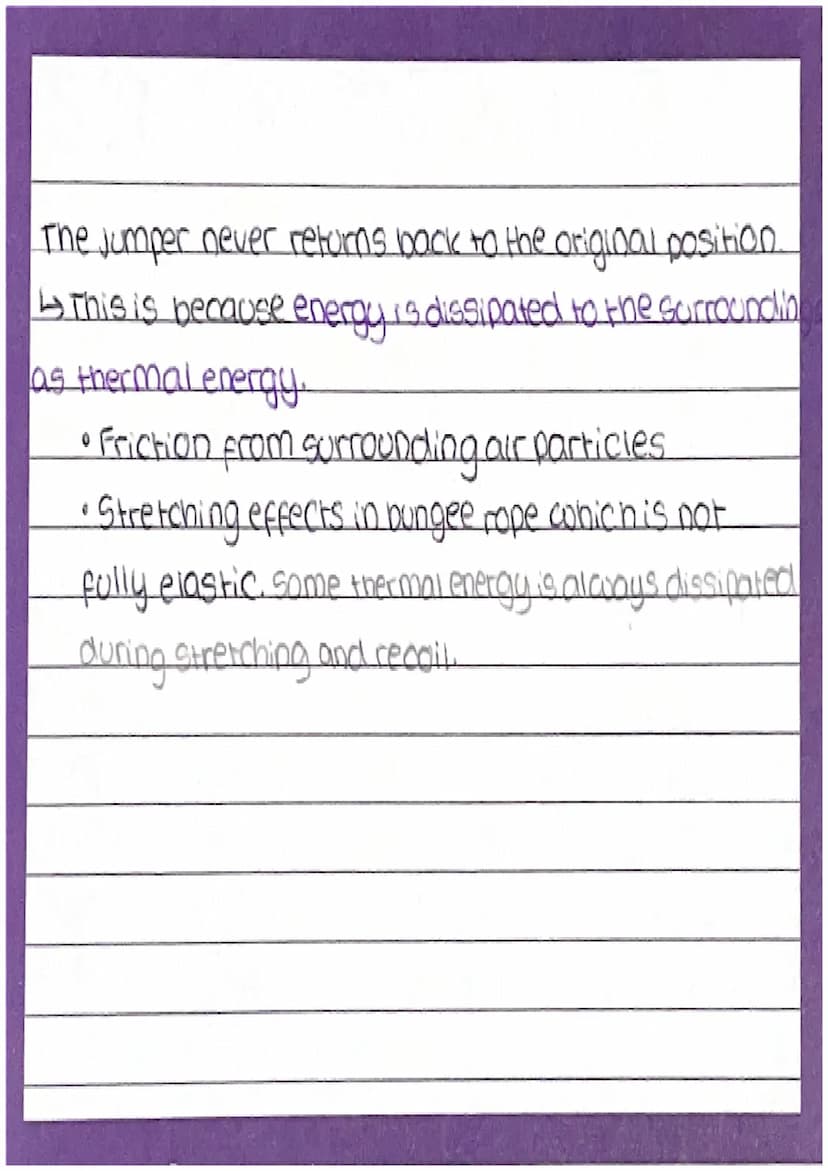 The jumper never returns back to the original position.
↳ This is because energy is dissipated to the surroundings
as thermal energy.
• Friction from surrounding air particles
• Stretching effects in bungee rope which is not
fully elastic. Some thermal energy is always dissipated
during stretching and recoil.